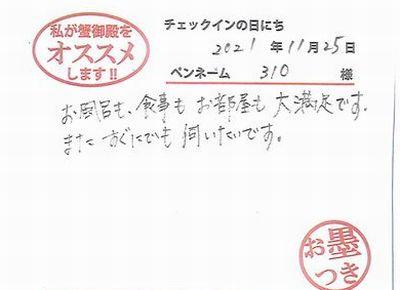 私が蟹御殿を
オススメ
します!!
チェックインの日にち
2021年11月25日
ペンネーム 310 様
お風呂も、食事もお部屋も大満足です。
またすぐにでも伺いたいです。
お墨
つき